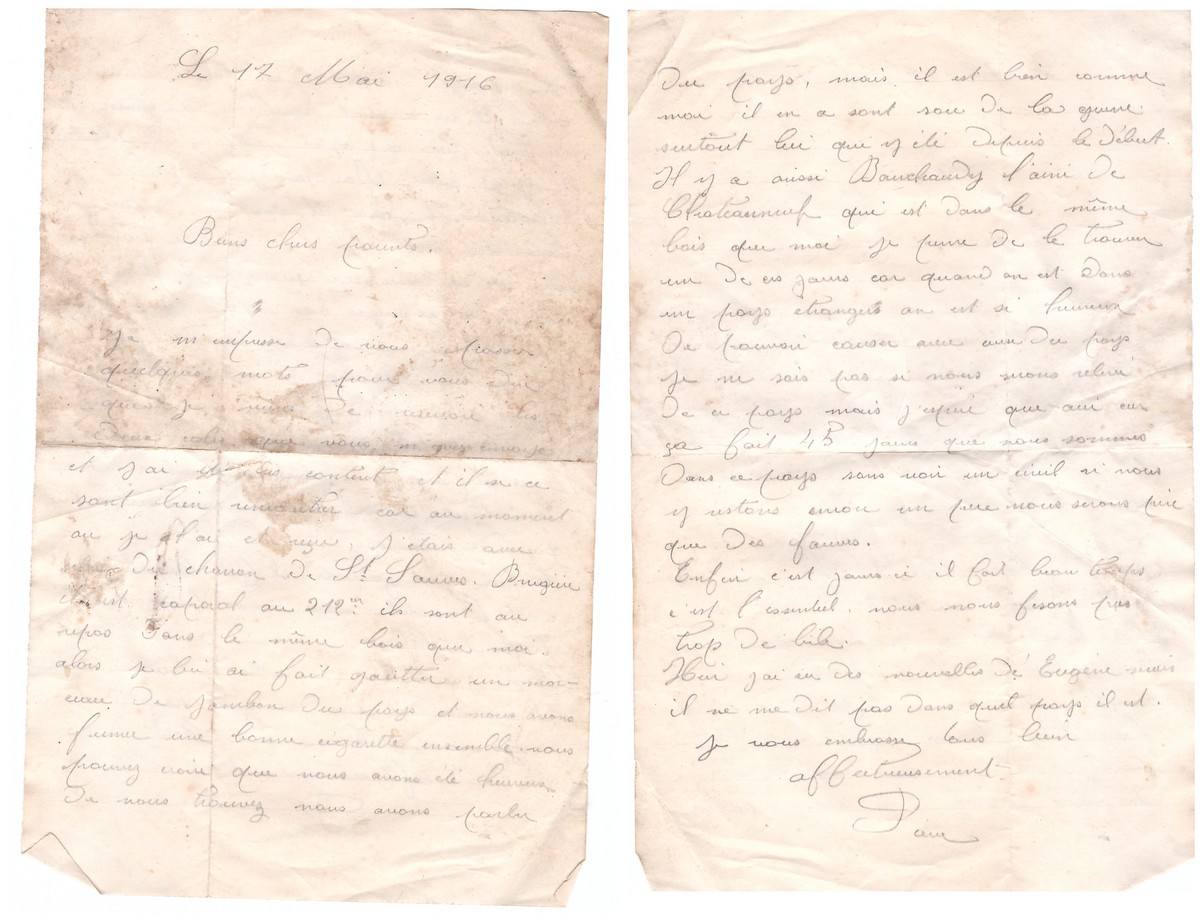 Le 17 Mai 1916
Biens chers parents.
Je m'empresse de vous
quelques mots pour vous dire
que je viens de recevoir les
deux colis que vous m'avez envoyé
et j'ai content et il se ce
sont bien car au moment
ou je l'ai et reçu, j'étais avec
du charron de St Sauves. Brugière
il est caporal au 212me ils sont au
repos dans le même bois que moi.
alors je lui ai fait goutter un mor-
ceau de jambon du pays et nous avons
fumer une bonne cigarette ensemble vous
pouvez croire que nous avons été heureux
de nous trouvez nous avons parler
du pays, mais il est bien comme
moi il en a sont sou de la guerre
surtout lui que y été depuis le début.
Il y a aussi Bauchaudy l'ainé de
Chateauneuf qui est dans le même
bois que moi je pense de le trouver
un de ces jours car quand on est dans
un pays étrangers on est si heureux
de pouvoir causer avec un du pays
je ne sais pas si nous serons relevé
de ce pays mais j'espère que oui car
ça fait 45 jours que nous sommes
dans ce pays sans voir un civil si nous
y restons encore un peu nous serons pire
que des fauves.
Enfin c'est jours ci il fait beau temps
c'est l'essentiel. nous nous fesons pas
trop de bile.
Hier j'ai eu des nouvelles de Eugène mais
il ne me dit pas dans quel pays il est.
je vous embrasse tous bien
affectueusement
Pierre